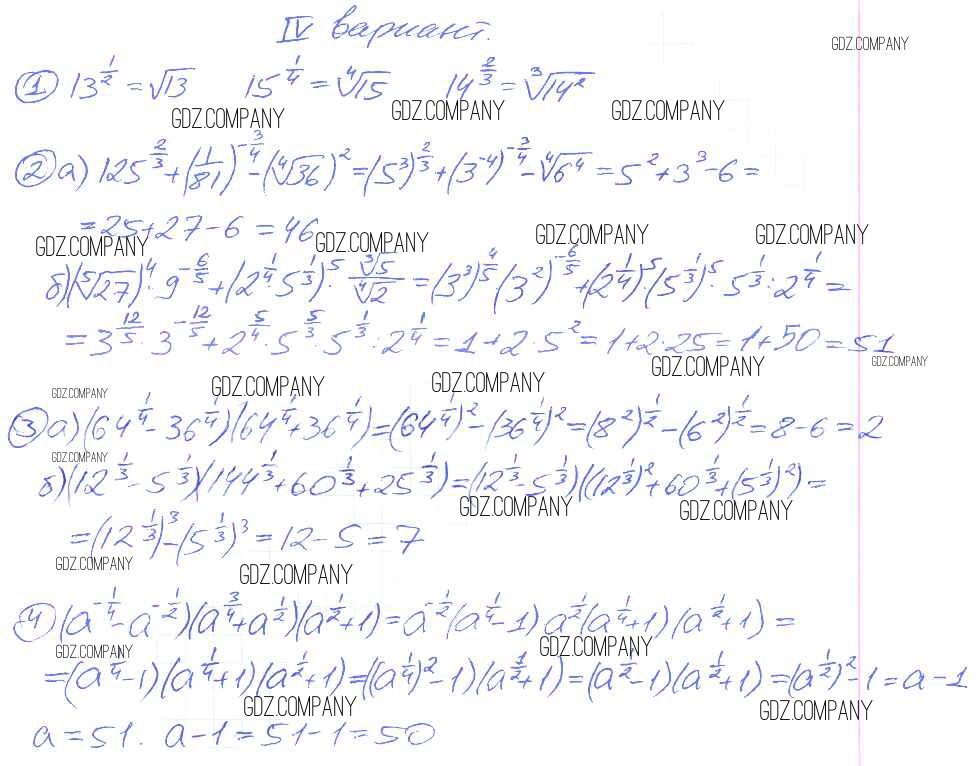 IV вариант.
GDZ.COMPANY
① 13^{1/2} = √13   15^{1/4} = ⁴√15   14^{2/3} = ³√14²
GDZ.COMPANY GDZ.COMPANY GDZ.COMPANY
② а) 125^{2/3} + (1/81)^{-3/4} - (⁴√36)² = (5³)^{2/3} + (3^{-4})^{-3/4} - ⁴√6⁴ = 5² + 3³ - 6 =
= 25 + 27 - 6 = 46
GDZ.COMPANY GDZ.COMPANY GDZ.COMPANY GDZ.COMPANY
б) (⁵√27)⁴ · 9^{-6/5} + (2^{1/4} · 5^{1/3})⁵ · ³√5/⁴√2 = (3³)^{4/5} (3²)^{-6/5} + (2^{1/4})⁵ · (5^{1/3})⁵ · 5^{1/3} : 2^{1/4} =
= 3^{12/5} · 3^{-12/5} + 2^{5/4} · 5^{5/3} · 5^{1/3} : 2^{1/4} = 1 + 2 · 5² = 1 + 2 · 25 = 1 + 50 = 51
GDZ.COMPANY GDZ.COMPANY
GDZ.COMPANY GDZ.COMPANY GDZ.COMPANY
③ а) (64^{1/4} - 36^{1/4})(64^{1/4} + 36^{1/4}) = (64^{1/4})² - (36^{1/4})² = (8²)^{1/2} - (6²)^{1/2} = 8 - 6 = 2
GDZ.COMPANY
б) (12^{1/3} - 5^{1/3})(144^{1/3} + 60^{1/3} + 25^{1/3}) = (12^{1/3} - 5^{1/3})((12^{1/3})² + 60^{1/3} + (5^{1/3})²) =
GDZ.COMPANY GDZ.COMPANY
= (12^{1/3})³ - (5^{1/3})³ = 12 - 5 = 7
GDZ.COMPANY GDZ.COMPANY
④ (a^{-1/4} - a^{-1/2})(a^{3/4} + a^{1/2})(a^{1/2} + 1) = a^{-1/2}(a^{1/4} - 1) a^{1/2}(a^{1/4} + 1)(a^{1/2} + 1) =
GDZ.COMPANY GDZ.COMPANY
= (a^{1/4} - 1)(a^{1/4} + 1)(a^{1/2} + 1) = ((a^{1/4})² - 1)(a^{1/2} + 1) = (a^{1/2} - 1)(a^{1/2} + 1) = (a^{1/2})² - 1 = a - 1
GDZ.COMPANY GDZ.COMPANY
a = 51.   a - 1 = 51 - 1 = 50